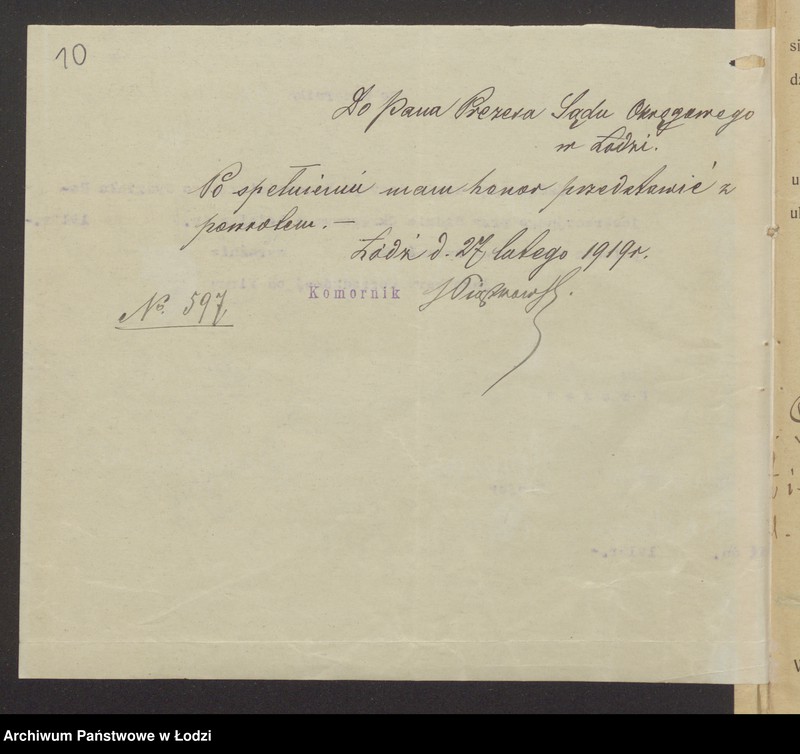 10
Do Pana Prezesa Sądu Okręgowego
w Łodzi.
Po spełnieniu mam honor przedstawić z
powrotem. —
Łódź d. 27 lutego 1919 r.
Komornik
No. 597
Archiwum Państwowe w Łodzi